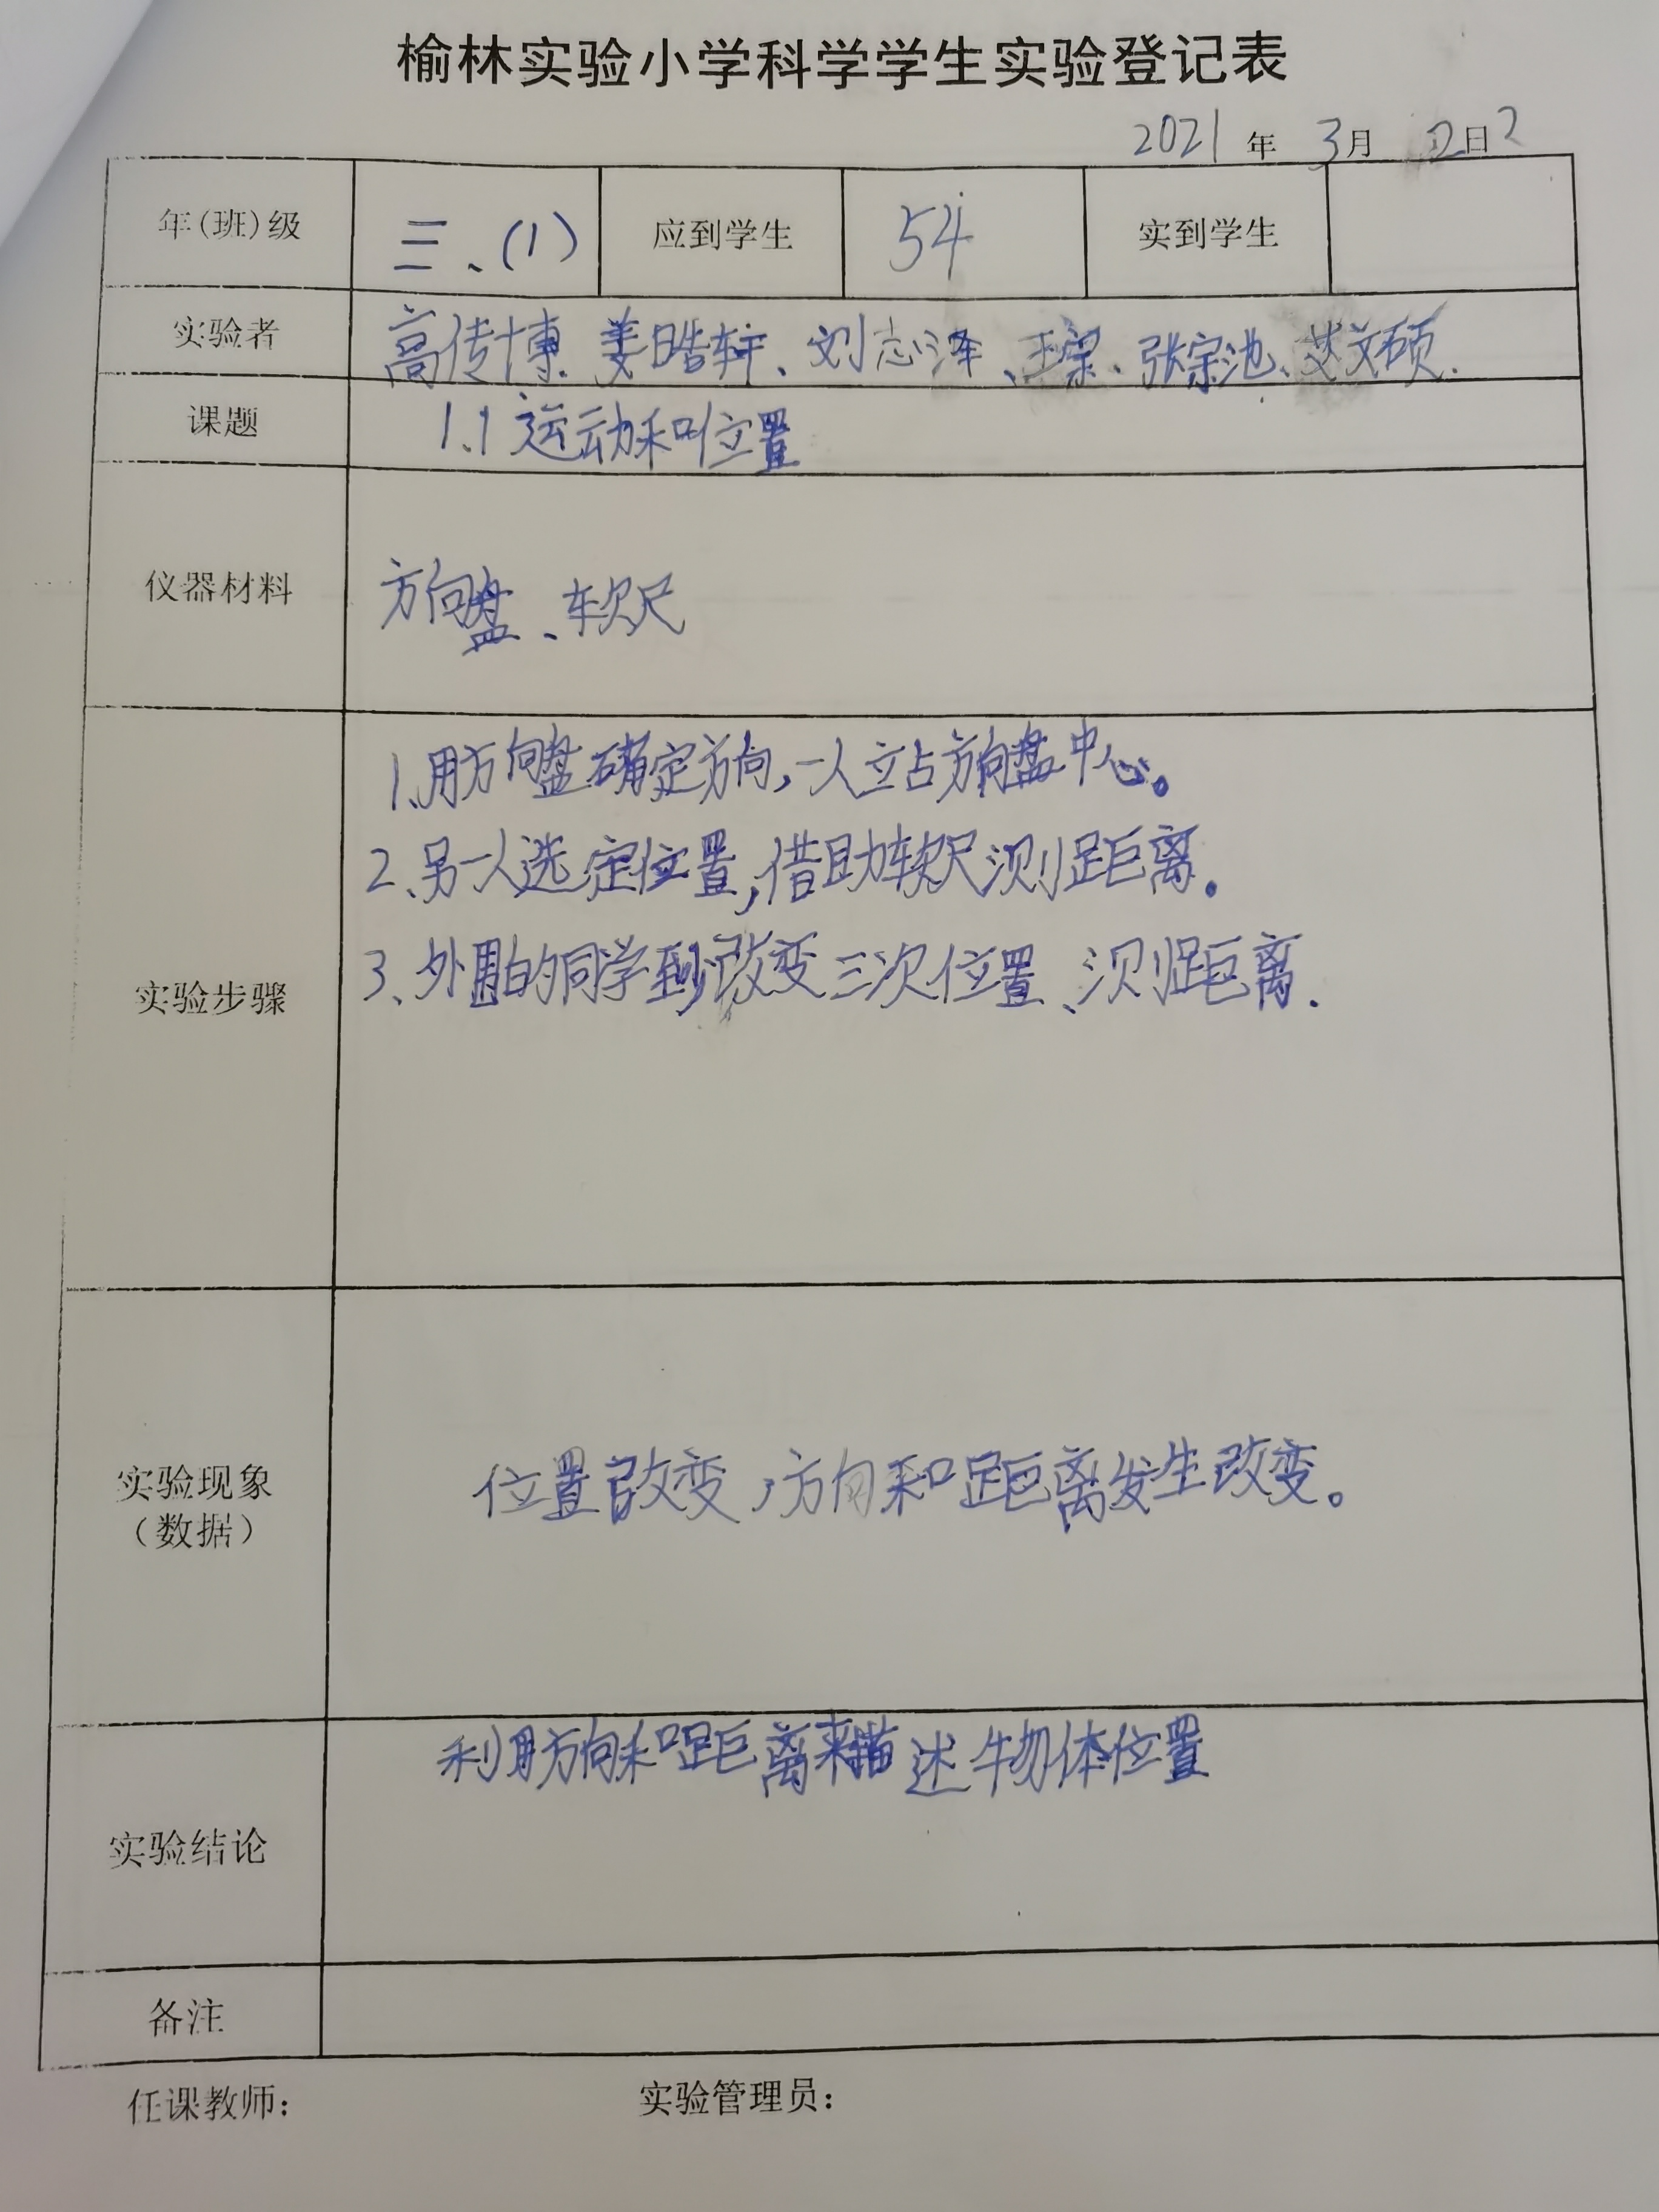 榆林实验小学科学学生实验登记表
2021 年 3月 2日2
年(班)级 三、(1) 应到学生 54 实到学生
实验者 高传博、姜皓轩、刘志泽、王梁、张宗池、艾文硕.
课题 1.1 运动和位置
仪器材料 方向盘、软尺
1、用方向盘确定方向,一人立占方向盘中心。
2、另一人选定位置,借助软尺测距离。
实验步骤
3、外围的同学到改变三次位置、测距离.
实验现象
(数据)
位置改变,方向和距离发生改变。
利用方向和距离来描述物体位置
实验结论
备注
任课教师: 实验管理员: